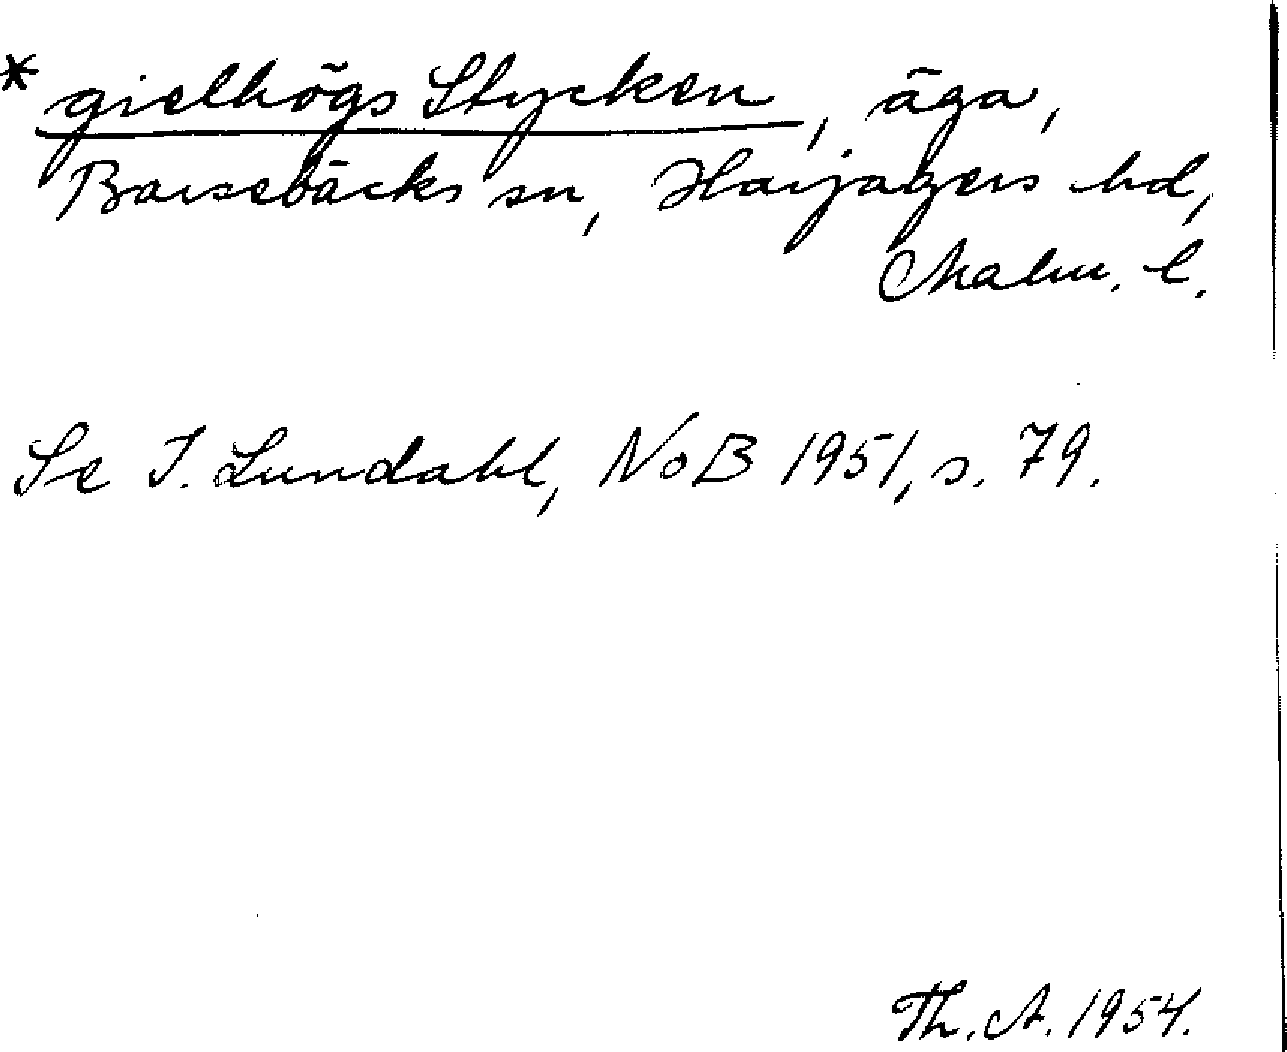 * gielhögs Stycken, äga,
Barsebäcks sn, Harjagers hd,
Malm. l.
Se I. Lundahl, NoB 1951, s. 79.
Th. A. 1954.